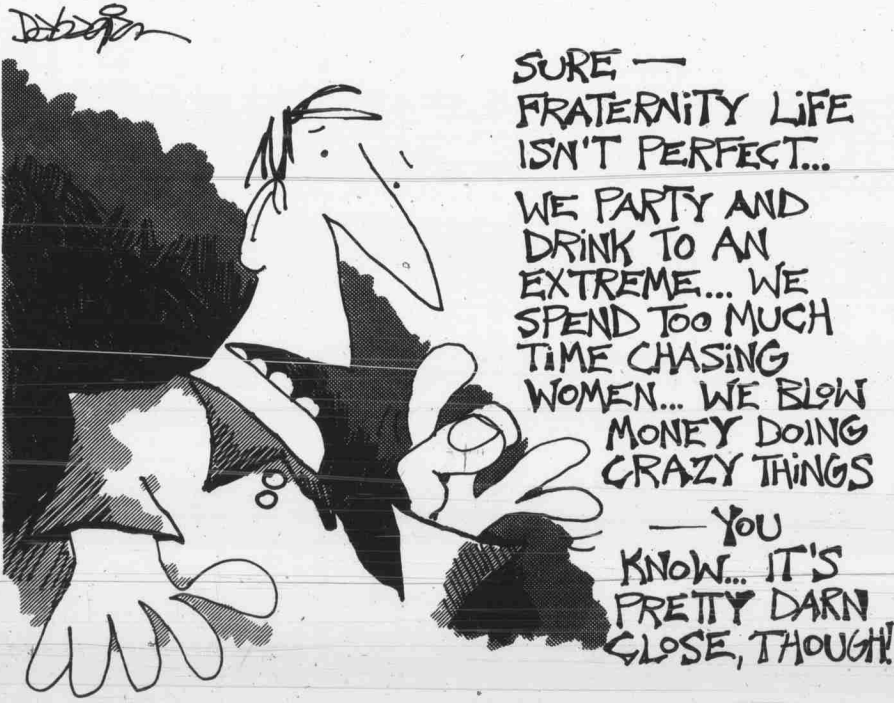 SURE —
FRATERNITY LIFE
ISN'T PERFECT...
WE PARTY AND
DRINK TO AN
EXTREME... WE
SPEND TOO MUCH
TIME CHASING
WOMEN... WE BLOW
MONEY DOING
CRAZY THINGS
— YOU
KNOW... IT'S
PRETTY DARN
CLOSE, THOUGH!